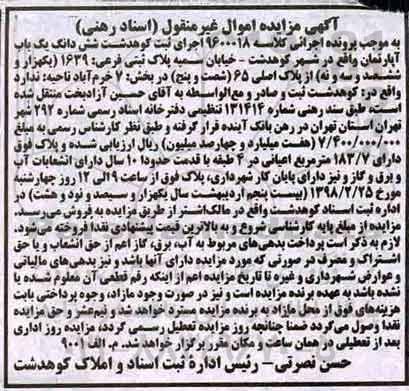 آگهی مزایده اموال غیرمنقول (اسناد رهنی)
به موجب پرونده اجرائی کلاسه ۹۶۰۰۰۱۸اجرای ثبت کوهدشت شش دانگ یک باب
آپارتمان واقع در شهر کوهدشت - خیابان سمیه پلاک ثبتی فرعی: ۱۶۳۹ (یکهزار و
ششصد و سه و نه) از پلاک اصلی ۶۵ (شصت و پنج) در بخش: ۷ خرم‌آباد ناحیه: ندارد
واقع در: کوهدشت ثبت و صادر و مع‌الواسطه به آقای حسین آزادبخت منتقل شده
است، طبق سند رهنی شماره ۱۳۱۴۱۴ تنظیمی دفترخانه اسناد رسمی شماره ۲۹۲ شهر
تهران استان تهران در رهن بانک آینده قرار گرفته و طبق نظر کارشناس رسمی به مبلغ
۷/۴۰۰/۰۰۰/۰۰۰ (هفت میلیارد و چهارصد میلیون) ریال ارزیابی شده و پلاک فوق
دارای ۱۸۳/۷ مترمربع اعیانی در ۴ طبقه با قدمت حدودا ۱۰ سال دارای انشعابات آب
و برق و گاز و نیز دارای پایان کار شهرداری، پلاک فوق از ساعت ۹ الی ۱۲ روز چهارشنبه
مورخ ۱۳۹۸/۲/۲۵ (بیست پنجم اردیبهشت سال یکهزار و سیصد و نود و هشت) در
اداره ثبت اسناد کوهدشت واقع در مالک‌اشتر از طریق مزایده به فروش می‌رسد.
مزایده از مبلغ پایه کارشناسی شروع و به بالاترین قیمت پیشنهادی نقدا فروخته می‌شود.
لازم به ذکر است پرداخت بدهی‌های مربوط به آب، برق، گاز اعم از حق انشعاب و یا حق
اشتراک و مصرف در صورتی که مورد مزایده دارای آنها باشد و نیز بدهی‌های مالیاتی
و عوارض شهرداری و غیره تا تاریخ مزایده اعم از اینکه رقم قطعی آن معلوم شده یا
نشده باشد به عهده برنده مزایده است و نیز در صورت وجود مازاد، وجوه پرداختی بابت
هزینه‌های فوق از محل مازاد به برنده مزایده مسترد خواهد شد و نیم‌عشر و حق مزایده
نقدا وصول می‌گردد ضمنا چنانچه روز مزایده تعطیل رسمی گردد، مزایده روز اداری
بعد از تعطیلی در همان ساعت و مکان مقرر برگزار خواهد شد. م. الف ۹۰۰۱
حسن نصرتی- رئیس ادارهٔ ثبت اسناد و املاک کوهدشت